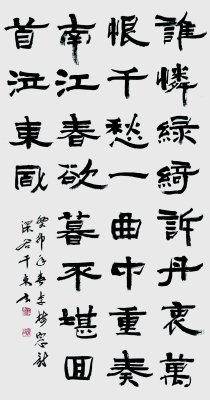 誰憐綠綺訴丹衷萬
恨千愁一曲中重奏
南江春欲暮不堪回
首泣東風
癸卯年春